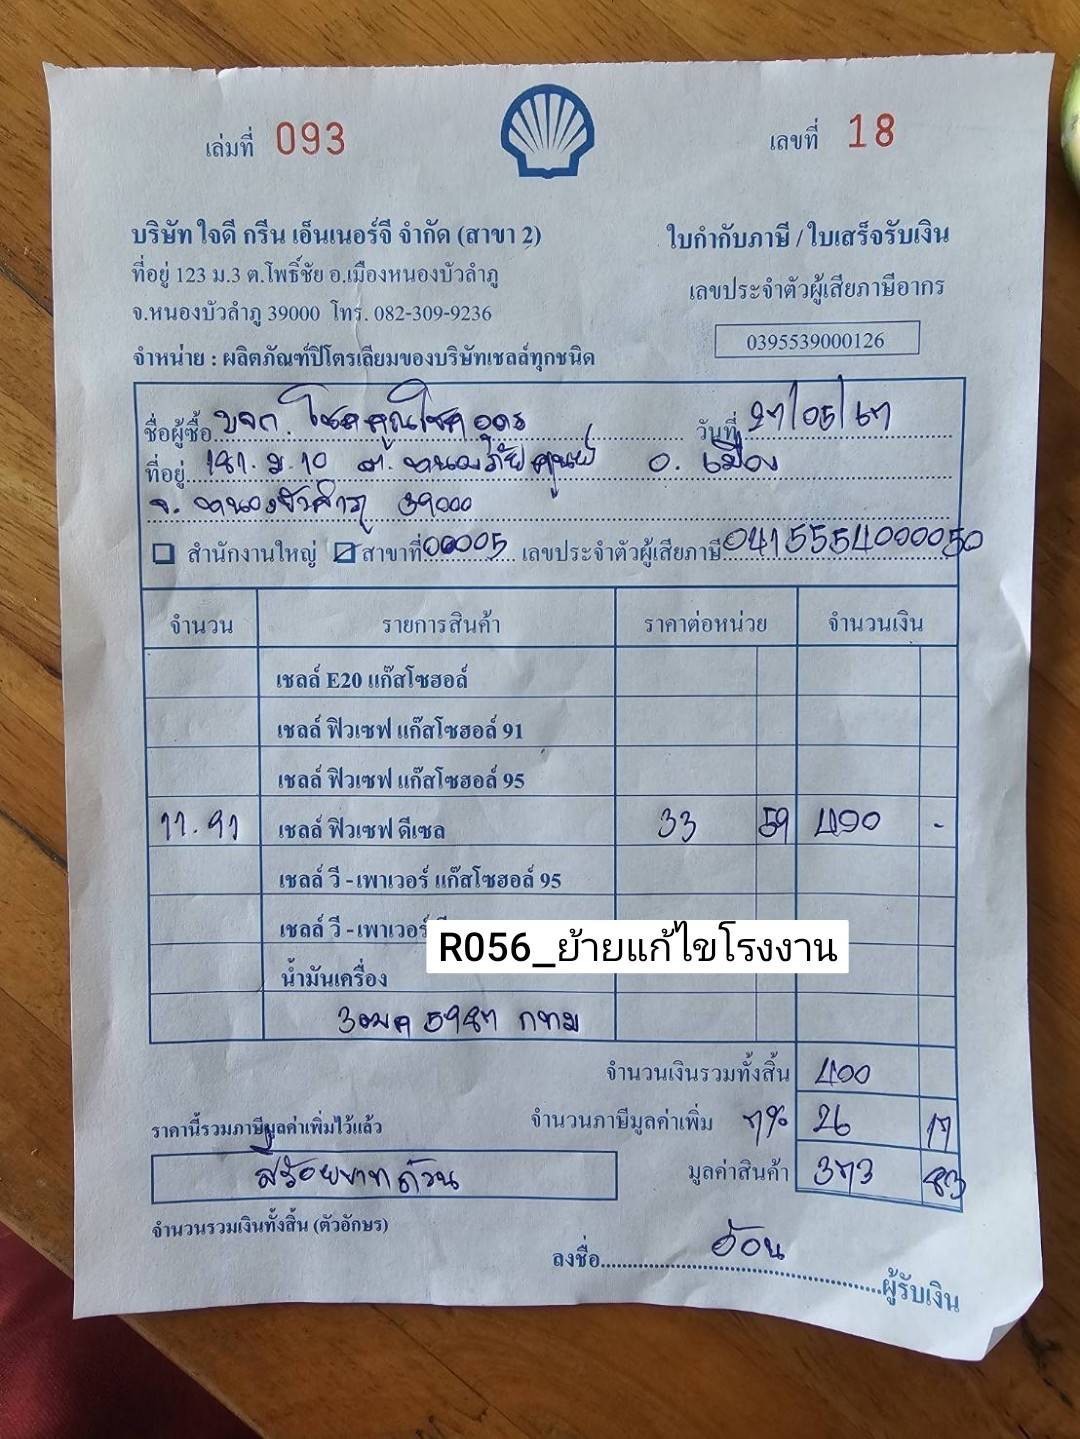 เล่มที่ 093
เลขที่ 18
บริษัท ใจดี กรีน เอ็นเนอร์จี จำกัด (สาขา 2)
ใบกำกับภาษี / ใบเสร็จรับเงิน
ที่อยู่ 123 ม.3 ต.โพธิ์ชัย อ.เมืองหนองบัวลำภู
เลขประจำตัวผู้เสียภาษีอากร
จ.หนองบัวลำภู 39000 โทร. 082-309-9236
0395539000126
จำหน่าย : ผลิตภัณฑ์ปิโตรเลียมของบริษัทเชลล์ทุกชนิด
ชื่อผู้ซื้อ บจก. โชคคูณโชค อุดร วันที่ 27/05/67
ที่อยู่ 181 ม.10 ต. หนองภัยศูนย์ อ. เมือง
จ. หนองบัวลำภู 39000
สำนักงานใหญ่ สาขาที่ 00005 เลขประจำตัวผู้เสียภาษี 0415554000050
จำนวน รายการสินค้า ราคาต่อหน่วย จำนวนเงิน
เชลล์ E20 แก๊สโซฮอล์
เชลล์ ฟิวเซฟ แก๊สโซฮอล์ 91
เชลล์ ฟิวเซฟ แก๊สโซฮอล์ 95
11.91 เชลล์ ฟิวเซฟ ดีเซล 33 59 400 -
เชลล์ วี - เพาเวอร์ แก๊สโซฮอล์ 95
เชลล์ วี - เพาเวอร์
R056_ย้ายแก้ไขโรงงาน
น้ำมันเครื่อง
5987 กทม
จำนวนเงินรวมทั้งสิ้น 400
ราคานี้รวมภาษีมูลค่าเพิ่มไว้แล้ว จำนวนภาษีมูลค่าเพิ่ม 7% 26 17
สี่ร้อยบาทถ้วน มูลค่าสินค้า 373 83
จำนวนรวมเงินทั้งสิ้น (ตัวอักษร)
ลงชื่อ อ้อน ผู้รับเงิน